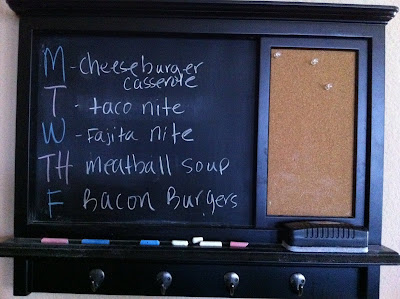 M - cheeseburger
casserole
T - taco nite
W - Fajita nite
TH meatball soup
F Bacon Burgers